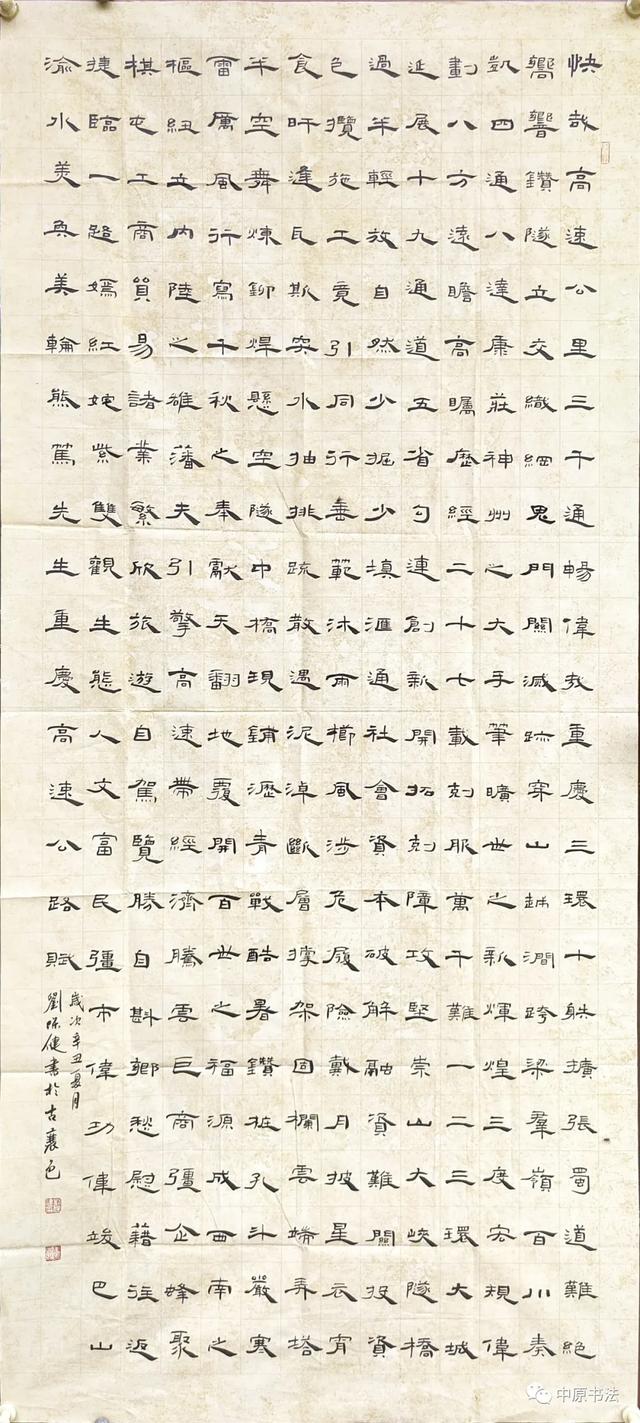 快哉高速公里三千通暢偉哉重慶三環十射擴張蜀道難絕
嚮響鑽隧立交織網鬼門關滅跡穿山越澗跨梁羣嶺百川奏
凱四通八達康莊神州之大手筆曠世之新輝煌三度宏規偉
劃八方遠瞻高矚歷經二十七載剋服萬千難一二三環大城
延展十九通道五省勾連創新開拓剋障攻堅崇山大峽隧橋
過半輕放自然少掘少填滙通社會資本破解融資難關投資
色攬施工竟引同行垂範沐雨櫛風涉危履險戴月披星衣宵
食旰逢瓦斯突水抽排疏散遇泥淖斷層撐架固欄雲端弄塔
半空舞煉鉚焊懸空隧中橋現鋪瀝青戰酷暑鑽樁孔斗嚴寒
雷厲風行寫千秋之奉獻天翻地覆開百世之福源成西南之
樞紐立內陸之雄藩夫引擎高速帶經濟騰雲巨商彊企蜂聚
棋屯工商貿易諸業繁欣旅遊自駕覽勝自斟鄉愁慰藉往返
捷臨一趟嫣紅姹紫雙觀生態人文富民彊市偉功偉竣巴山
渝水美奐美輪熊篤先生重慶高速公路賦
歲次辛丑夏月
劉健書於古襄邑
中原书法